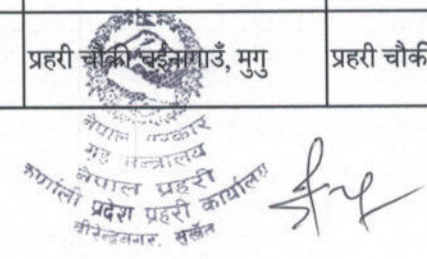 प्रहरी चौकी चईनागाउँ, मुगु
प्रहरी चौकी
नेपाल सरकार
गृह मन्त्रालय
नेपाल प्रहरी
कर्णाली प्रदेश प्रहरी कार्यालय
वीरेन्द्रनगर, सुर्खेत